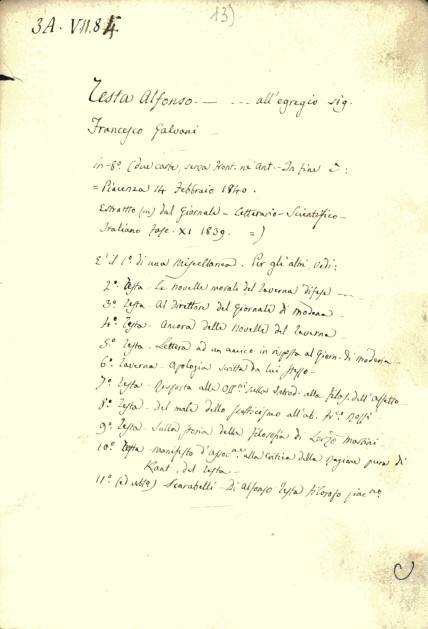 13)
3A. VII. 84
Testa Alfonso. — - - - all'egregio sig.
Francesco Galvani —
in-8º. (due carte, senza front. nè ant. - In fine
= Piacenza 14 Febbraio 1840.
Estratto (in) dal Giornale - Letterario - Scientifico -
Italiano fasc. XI 1839. =)
E' il 1º. di una Miscellanea. Per gli altri, vedi:
2º. Testa - Le novelle morali del Taverna difese ——
3º. Testa. Al Direttore del Giornale di modena -
4º. Testa. Ancora delle Novelle del Taverna
5º. Testa. Lettera ad un amico in risposta al Giorn. di modena -
6º. Taverna - Apologia scritta da lui stesso -
7º. Testa - Risposta alle Oss.ni sulla Introd. alla filos. dell'affetto -
8º. Testa - Del male dello scetticismo all'ab. Rossi
9º. Testa - Sulla storia della filosofia di Lor.zo Martini
10º. Testa - manifesto d'assoc.ne alla critica della ragione pura di
Kant, del Testa -
11º. (ed ulto) Scarabelli - Di Alfonso Testa filosofo piac.no